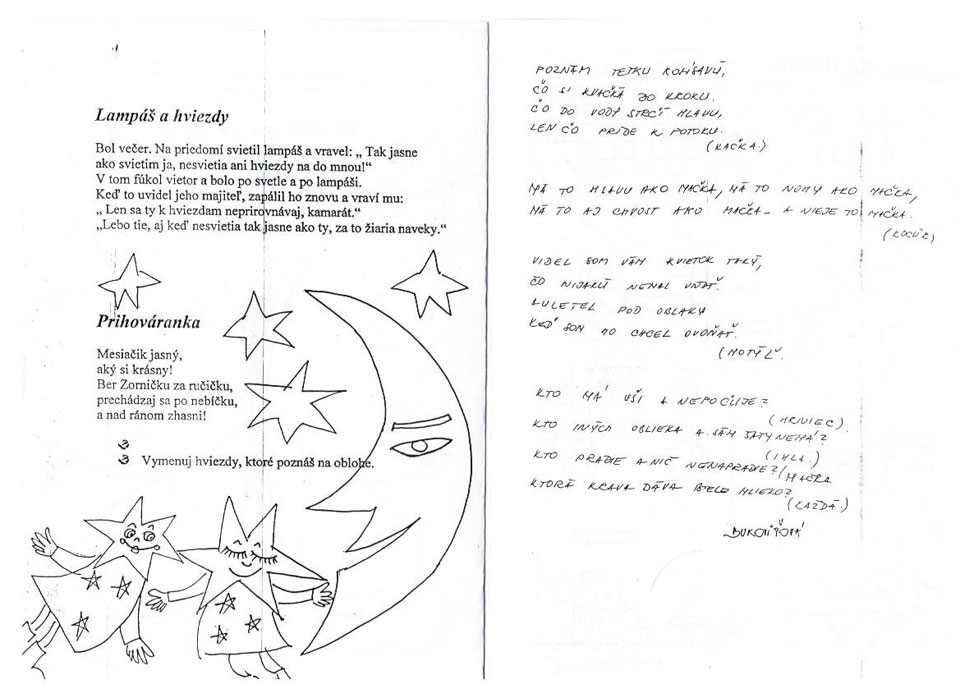 Lampáš a hviezdy
Bol večer. Na priedomí svietil lampáš a vravel: „ Tak jasne
ako svietim ja, nesvietia ani hviezdy na do mnou!“
V tom fúkol vietor a bolo po svetle a po lampáši.
Keď to uvidel jeho majiteľ, zapálil ho znovu a vraví mu:
„ Len sa ty k hviezdam neprirovnávaj, kamarát.“
„Lebo tie, aj keď nesvietia tak jasne ako ty, za to žiaria naveky.“
Prihováranka
Mesiačik jasný,
aký si krásny!
Ber Zorničku za ručičku,
prechádzaj sa po nebíčku,
a nad ránom zhasni!
Vymenuj hviezdy, ktoré poznáš na oblohe.
POZNÁM TETKU KOLÍSAVÚ,
ČO SI KVAČKÁ DO KROKU.
ČO DO VODY STRČÍ HLAVU,
LEN ČO PRÍDE K POTOKU.
(KAČKA.)
MÁ TO HLAVU AKO MAČKA, MÁ TO NOHY AKO MAČKA,
MÁ TO AJ CHVOST AKO MAČKA - A NIEJE TO MAČKA.
(KOCÚR)
VIDEL SOM VÁM KVIETOK TAKÝ,
ČO NIJAKÚ NEMAL VŇAŤ.
ULETEL POD OBLAKY
KEĎ SOM HO CHCEL OVOŇAŤ.
(MOTÝĽ.
KTO MÁ UŠI A NEPOČUJE?
(HRNIEC).
KTO INÝCH OBLIEKA A SÁM ŠATY NEMÁ?
(IHLA.)
KTO PRADIE A NIČ NENAPRADIE? (MAČKA
KTORÁ KRAVA DÁVA BIELE MLIEKO?
(KAŽDÁ.)